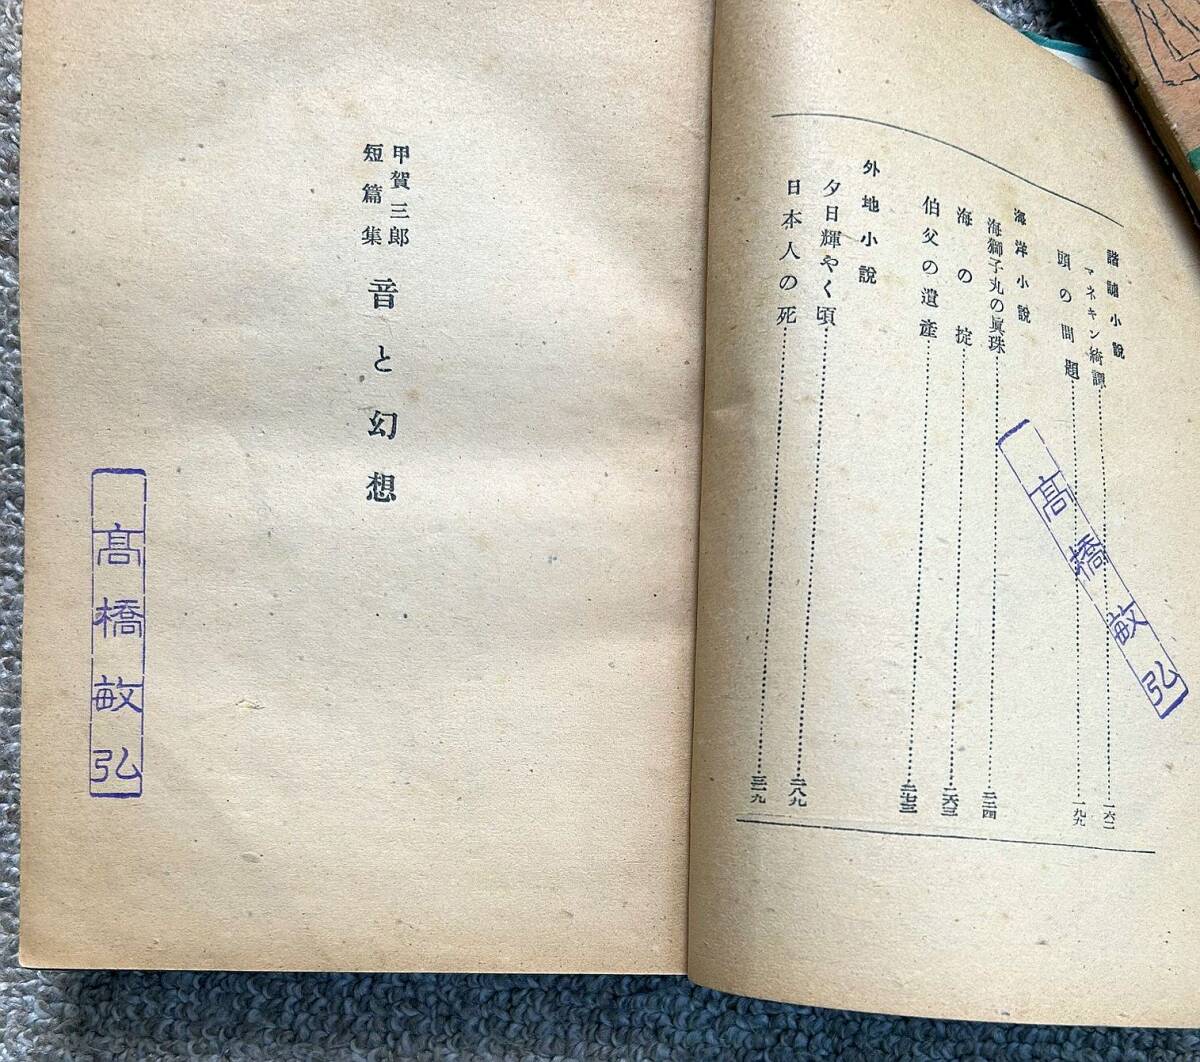 諧謔小說
マネキン綺譚……一六二
頭の問題……一九九
海洋小說
海獅子丸の眞珠……二二四
海の掟……二六三
伯父の遺產……二七三
外地小說
夕日輝やく頃……二八九
日本人の死……三一九
髙橋敏弘
甲賀三郎
短篇集
音と幻想
髙橋敏弘